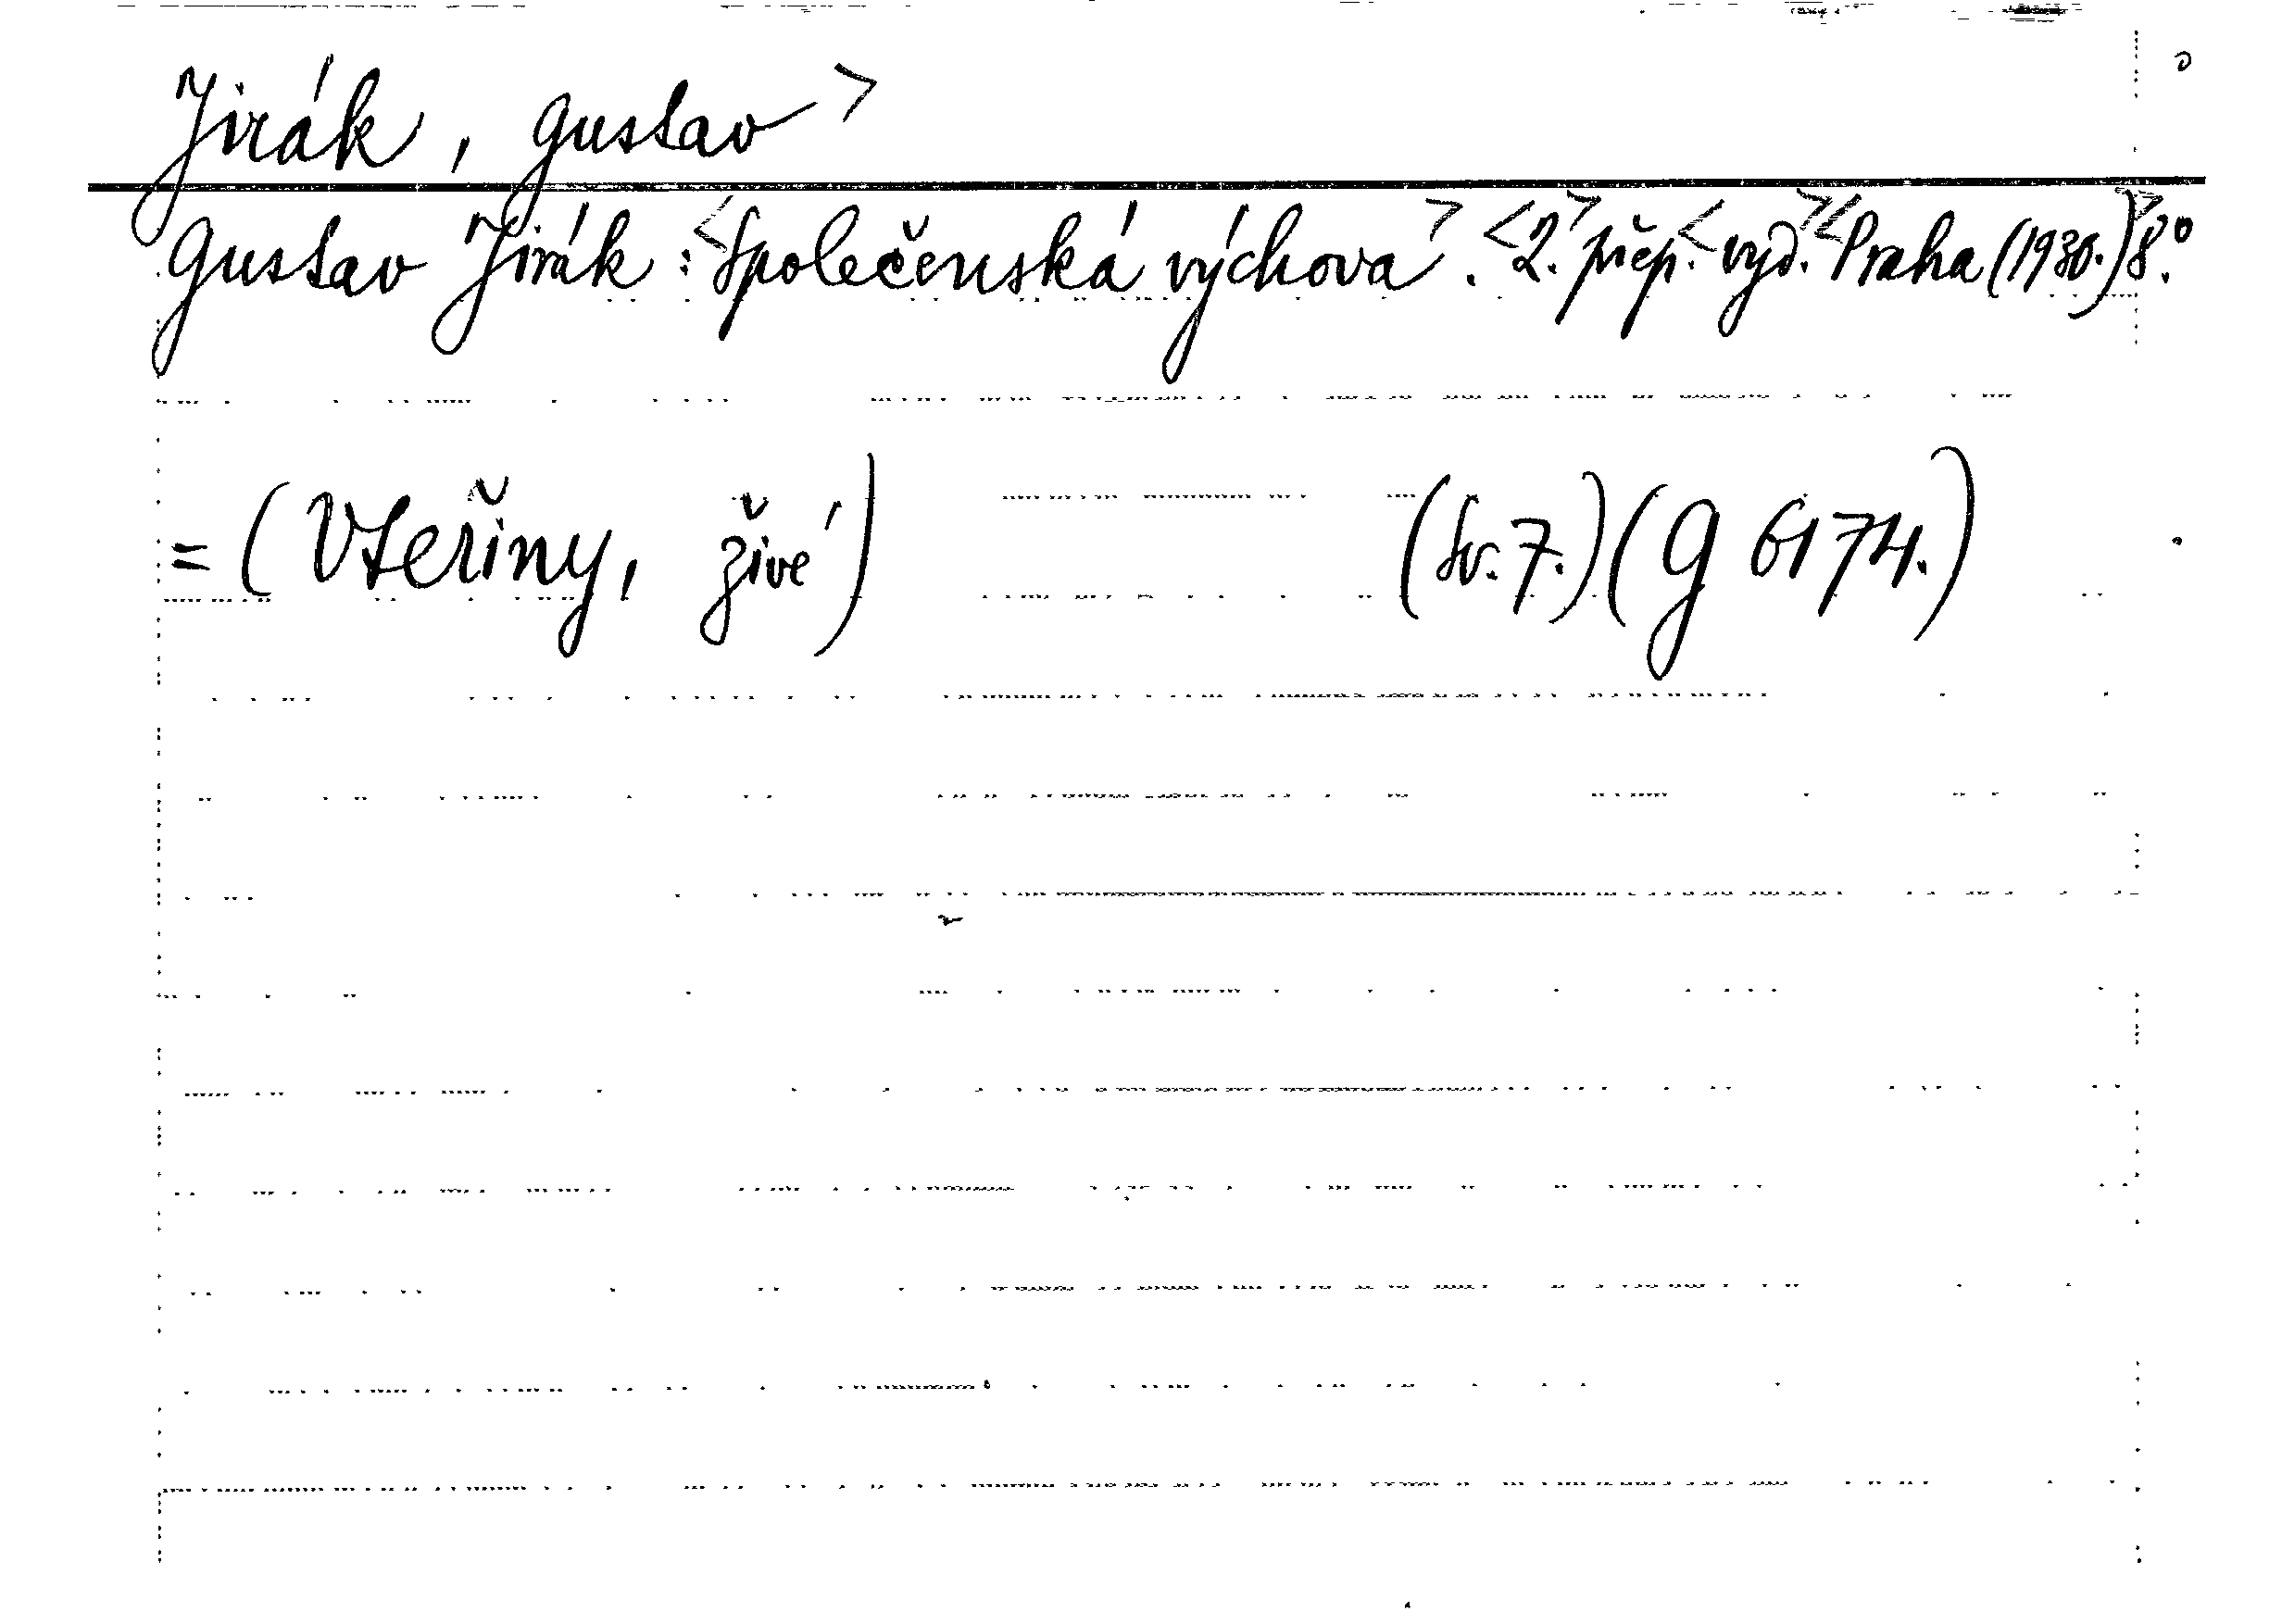 Jirák, Gustav>
Gustav Jirák: <Společenská výchova>. <2.> přep. <vyd.> <Praha (1930.)> 8.°
= (Vteřiny, živé) (Sv. 7.) (G 6174.)